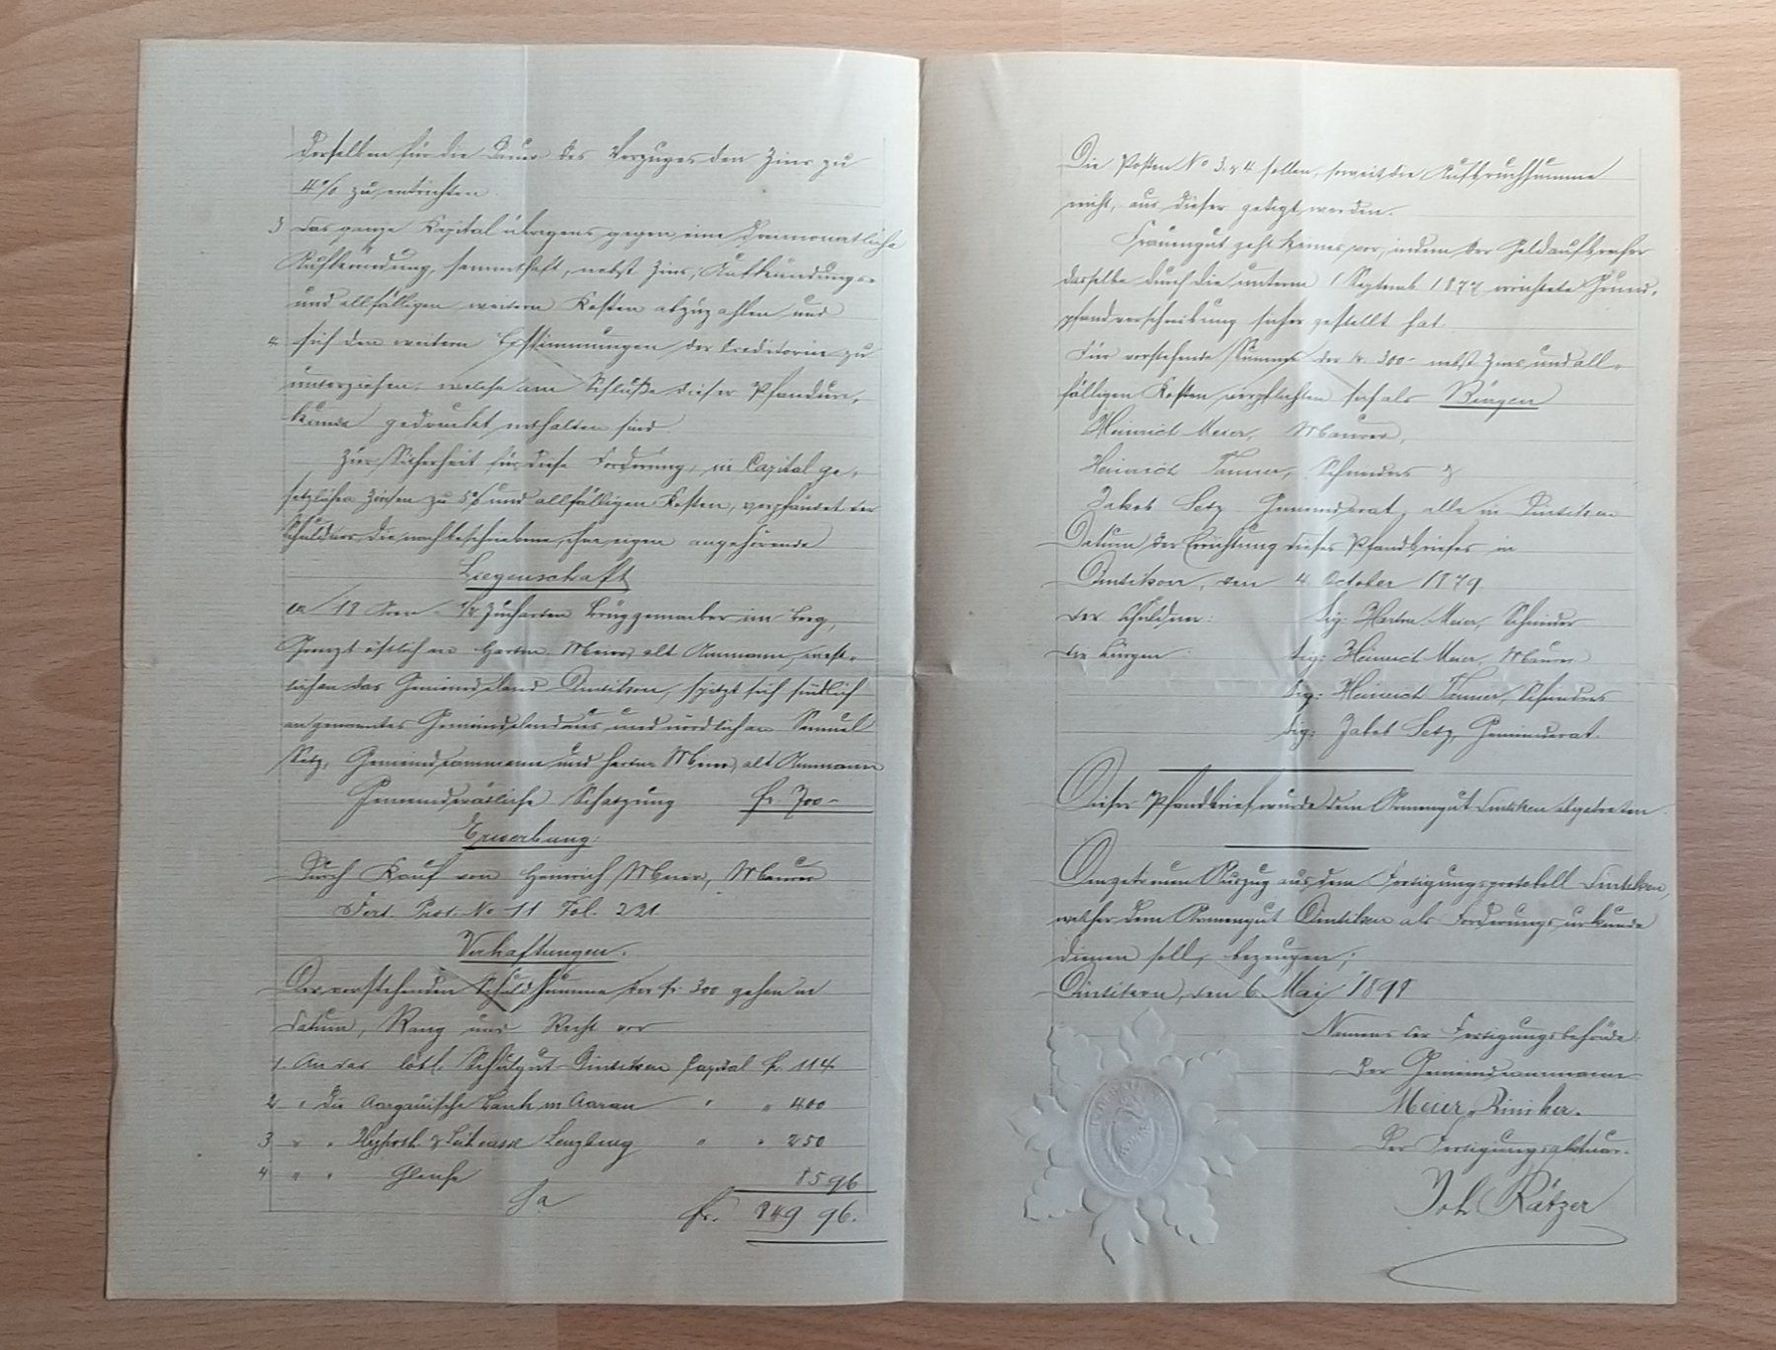 derselben für die Dauer des Verzuges den Zins zu
4% zu entrichten.
3 Das ganze Kapital übrigens gegen eine dreimonatliche
Aufkündung, sammthaft, nebst Zins, Aufkündungs-
und allfälligen weitern Kosten abzuzahlen und
4. sich den weitern Bestimmungen der Creditorin zu
unterziehen, welche am Schluße dieser Pfandur-
kunde gedruckt enthalten sind.
Zur Sicherheit für diese Forderung, in Capital ge-
setzlichen Zinsen zu 5% und allfälligen Kosten, verpfändet der
Schuldner die nachbeschriebene, ihm eigen angehörende
Liegenschaft
ca 18 Aren = 1/2 Jucharten im Berg,
Grenzt östlich an Hartm. Meier, alt Ammann, west-
lich an das Gemeindeland Dintikon, spitzt sich südlich
an genanntes Gemeindeland aus und nördlich an Samuel
Setz, Gemeindeammann und Hartm. Meier, alt Ammann
Gemeinderätliche Schatzung fr. 700-
Erwerbung:
Durch Kauf von Heinrich Meier, Maurer
Fert. Prot. No 11 Fol. 221.
Verhaftungen.
Der vorstehenden Schuldsumme der fr. 300 gehen in
Datum, Rang und Recht vor
1. An das löbl. Schulgut Dintikon Capital fr. 114
2 " die Aargauische Bank in Aarau " " 400
3 " " Hypoth. & Leihcasse Lenzburg " " 250
4 " " Gleiche 85 96
Sa fr. 849 96.
Die Posten No 3. & 4 sollen, soweit die Aufbruchsumme
reicht, aus dieser getilgt werden.
Frauengut geht keines vor, indem der Geldaufbrecher
dasselbe durch die unterm 1 Septemb. 1877 errichtete Grund-
pfandverschreibung sicher gestellt hat.
Für vorstehende Summe der fr. 300- nebst Zins und all-
fälligen Kosten verpflichten sich als Bürgen
Heinrich Meier, Maurer,
Heinrich Tanner, Schneiders &
Jakob Setz Gemeinderat, alle in Dintikon
Datum der Errichtung dieses Pfandbriefes in
Dintikon, den 4. October 1879
Der Schuldner: sig: Hartm. Meier, Schneider
Die Bürgen: sig: Heinrich Meier, Maurer
sig: Heinrich Tanner, Schneiders
sig: Jakob Setz, Gemeinderat.
Dieser Pfandbrief wurde dem Armengut Dintikon abgetreten.
Auszug aus dem Fertigungsprotokoll Dintikon,
welcher dem Armengut Dintikon als Forderungsurkunde
dienen soll, bezeugen;
Dintikon, den 6. Mai 1891
Namens der Fertigungsbehörde
Der Gemeindeammann
Meier, Riniker.
Der Fertigungsaktuar.
Joh. Rätzer